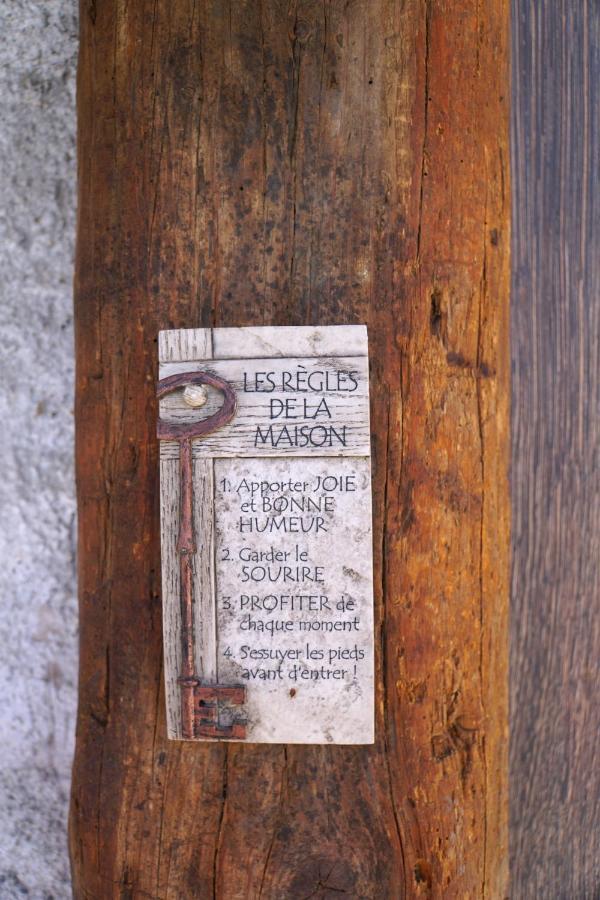 LES RÈGLES
DE LA
MAISON
1. Apporter JOIE
et BONNE
HUMEUR
2. Garder le
SOURIRE
3. PROFITER de
chaque moment
4. S'essuyer les pieds
avant d'entrer !